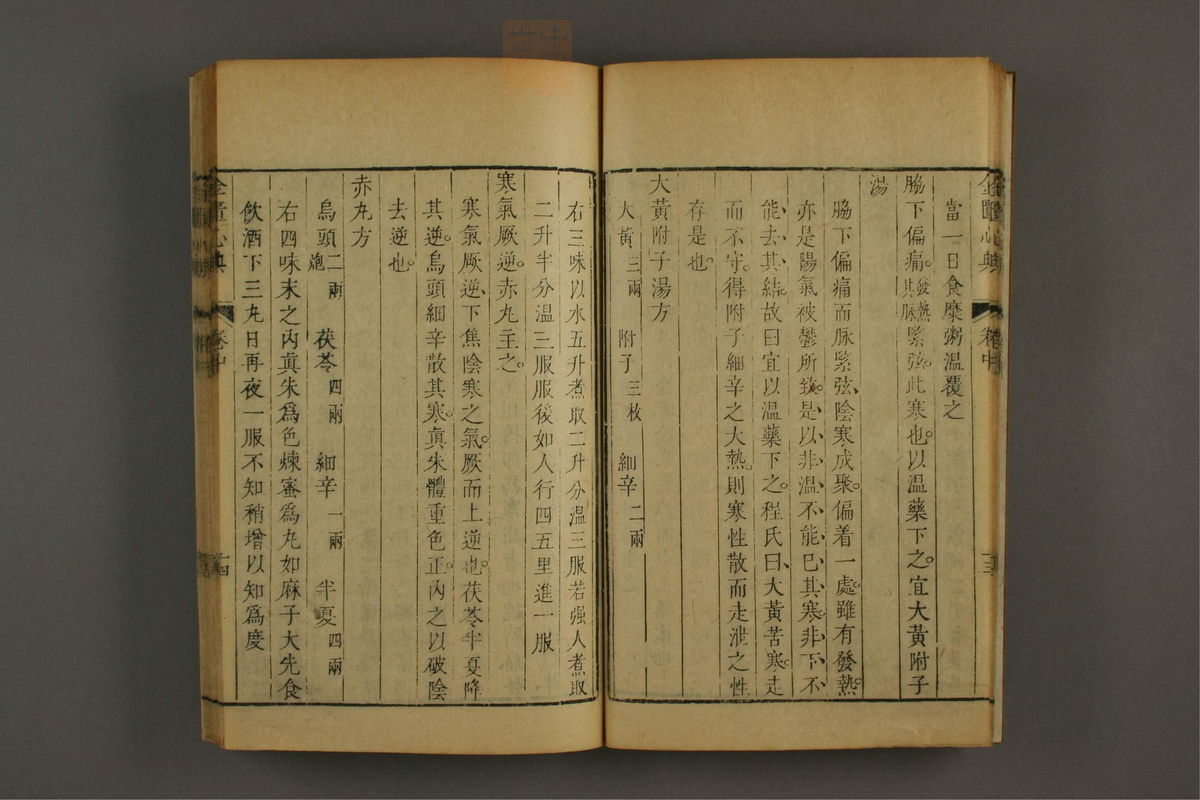 金匱心典
卷中
十三
當一日食糜粥温覆之
脇下偏痛。發熱其脉緊弦。此寒也。以温藥下之。宜大黃附子
湯
脇下偏痛而脉緊弦、陰寒成聚。偏着一處。雖有發熱。
亦是陽氣被鬱所致。是以非温不能已其寒。非下不
能去其結。故曰宜以温藥下之。程氏曰、大黃苦寒。走
而不守。得附子細辛之大熱。則寒性散而走泄之性
存是也。
大黃附子湯方
大黃三兩 附子三枚 細辛二兩
右三味以水五升煮取二升分温三服若强人煮取
二升半分温三服服後如人行四五里進一服
寒氣厥逆。赤丸主之。
寒氣厥逆、下焦陰寒之氣。厥而上逆也。茯苓半夏降
其逆。烏頭細辛散其寒。眞朱體重色正。內之以破陰
去逆也。
赤丸方
烏頭二兩炮 茯苓四兩 細辛一兩 半夏四兩
右四味末之內眞朱爲色煉蜜爲丸如麻子大先食
飲酒下三丸日再夜一服不知稍增以知爲度
金匱心典
卷中
十四